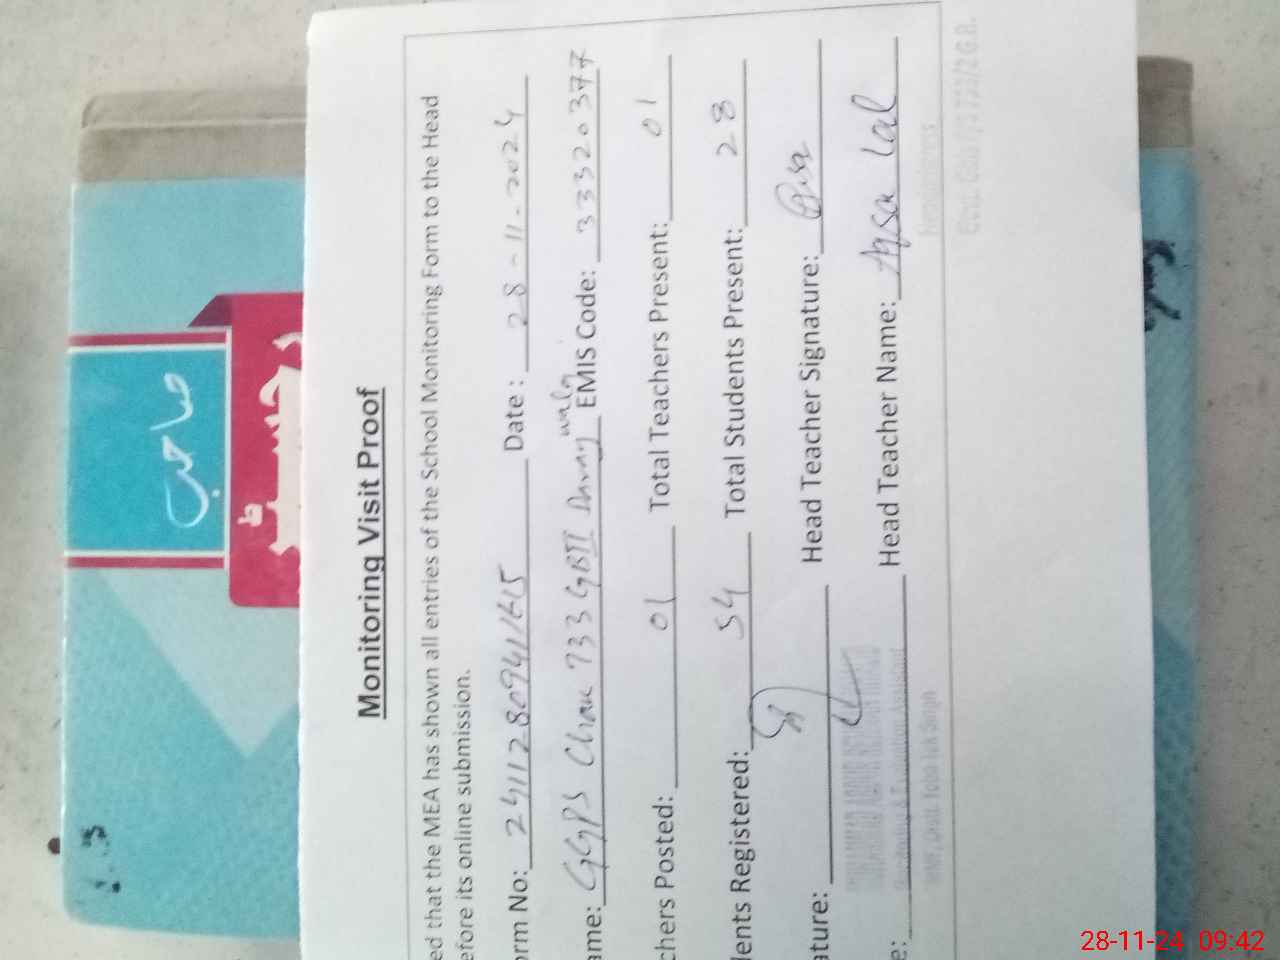 Monitoring Visit Proof
ed that the MEA has shown all entries of the School Monitoring Form to the Head
efore its online submission.
orm No: 2411280941615 Date: 28-11-2024
ame: GGPS Chak 733 GBII EMIS Code: 33320377
chers Posted: 01 Total Teachers Present: 01
dents Registered: 54 Total Students Present: 28
ature: Head Teacher Signature:
e: Head Teacher Name: Aqsa lal
Monitoring & Evaluation Assistant
Distt. Toba Tek Singh
صاحب
رجسٹر
28-11-24 09:42